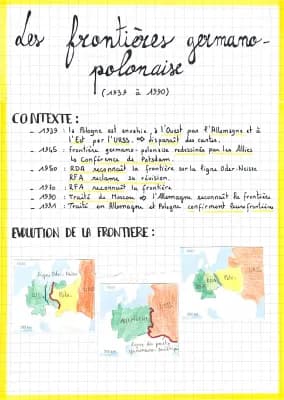 Les frontières germano-
polonaise
(1939 à 1990)
CONTEXTE :
_ 1939 : la Pologne est envahie, à l'Ouest par l'Allemagne et à
l'Est par l'URSS. ⇒ disparaît des cartes.
_ 1945 : Frontière germano-polonaise redessinée par les Alliés
la Conférence de Potsdam.
_ 1950 : RDA reconnaît la frontière sur la ligne Oder-Neisse
RFA réclame sa révision.
_ 1970 : RFA reconnaît la frontière
_ 1990 : Traité de Moscou ⇒ l'Allemagne reconnaît la frontière
_ 1991 : Traité où Allemagne et Pologne confirment leurs frontières
EVOLUTION DE LA FRONTIERE :
Ligne Oder-Neisse
ALLEMAGNE
URSS
Ligne du pacte
germano-soviétique
RDA
RFA